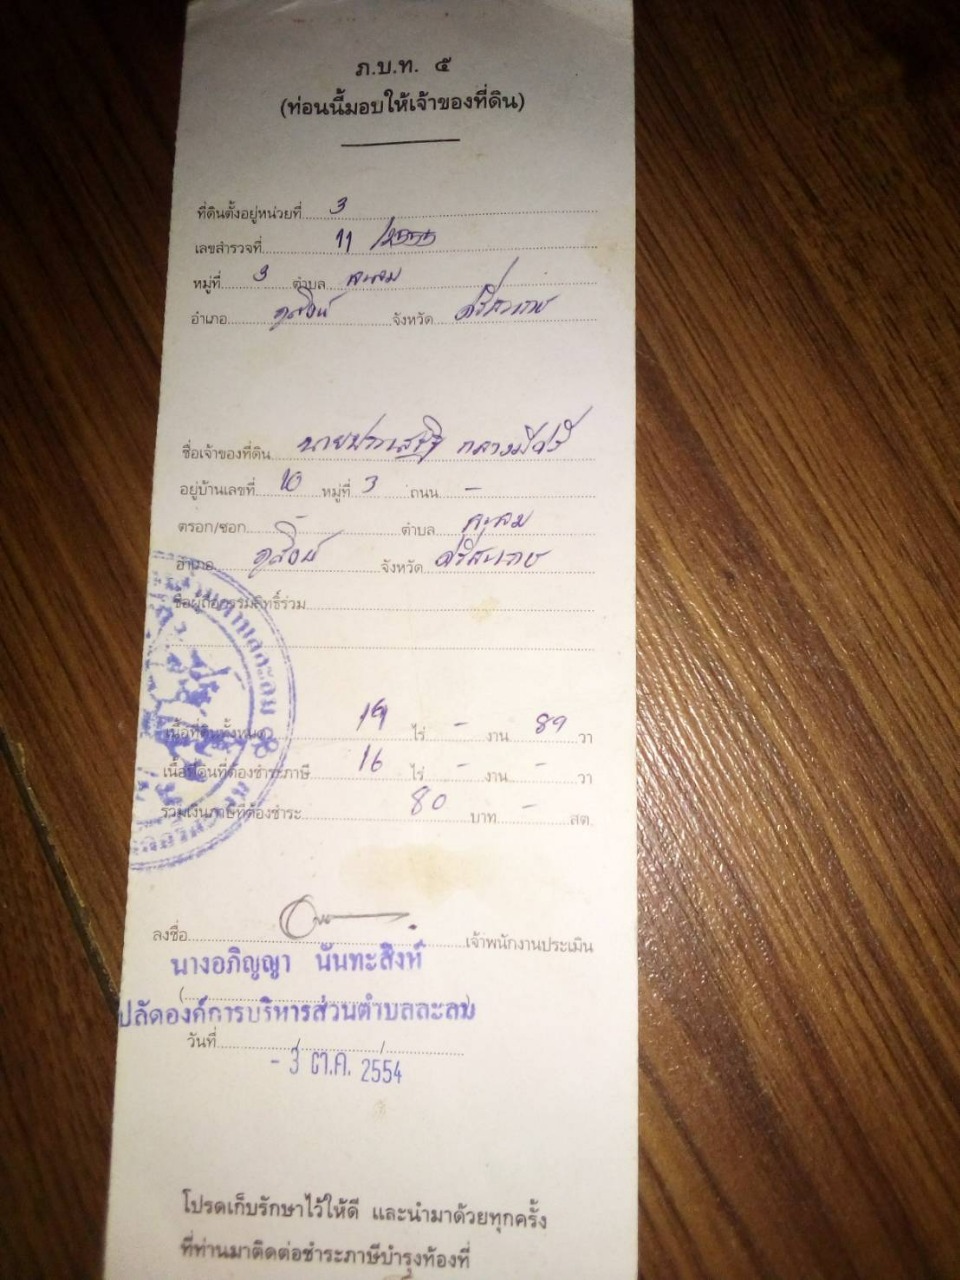 ภ.บ.ท. ๕
(ท่อนนี้มอบให้เจ้าของที่ดิน)
ที่ดินตั้งอยู่หน่วยที่ 3
เลขสำรวจที่ 11 /2555
หมู่ที่ 3 ตำบล ละลม
อำเภอ ภูสิงห์ จังหวัด ศรีสะเกษ
ชื่อเจ้าของที่ดิน
อยู่บ้านเลขที่ 10 หมู่ที่ 3 ถนน -
ตรอก/ซอก - ตำบล ละลม
อำเภอ ภูสิงห์ จังหวัด ศรีสะเกษ
ชื่อผู้ถือกรรมสิทธิ์ร่วม
เนื้อที่ดินทั้งหมด 19 ไร่ - งาน 89 วา
เนื้อที่ดินที่ต้องชำระภาษี 16 ไร่ - งาน - วา
รวมเงินภาษีที่ต้องชำระ 80 บาท - สต.
ลงชื่อ เจ้าพนักงานประเมิน
นางอภิญญา นันทะสิงห์
ปลัดองค์การบริหารส่วนตำบลละลม
วันที่ / /
- 3 ต.ค. 2554
โปรดเก็บรักษาไว้ให้ดี และนำมาด้วยทุกครั้ง
ที่ท่านมาติดต่อชำระภาษีบำรุงท้องที่